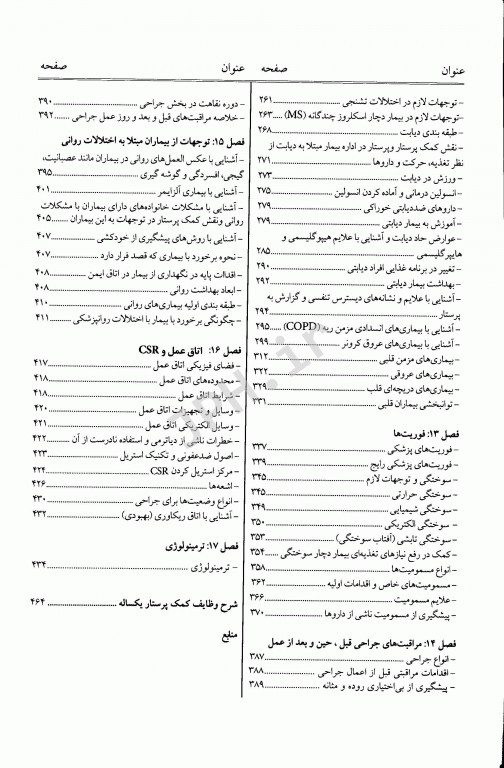 عنوان صفحه
- توجهات لازم در اختلالات تشنجی ..... ۲۶۱
- توجهات لازم در بیمار دچار اسکلروز چندگانه (MS) ..... ۲۶۳
- طبقه بندی دیابت ..... ۲۶۸
- نقش کمک پرستار وپرستار در اداره بیمار مبتلا به دیابت از
نظر تغذیه، حرکت و داروها ..... ۲۷۱
- ورزش در دیابت ..... ۲۷۳
- انسولین درمانی و آماده کردن انسولین ..... ۲۷۵
- داروهای ضددیابتی خوراکی ..... ۲۷۹
- آموزش به بیمار دیابتی ..... ۲۷۹
- عوارض حاد دیابت و آشنایی با علایم هیپوگلیسمی و
هایپرگلیسمی ..... ۲۸۵
- تغییر در برنامه غذایی افراد دیابتی ..... ۲۹۰
- بهداشت بیمار دیابتی ..... ۲۹۲
- آشنایی با علایم و نشانه‌های دیسترس تنفسی و گزارش به
پرستار ..... ۲۹۴
- آشنایی با بیماری‌های انسدادی مزمن ریه (COPD) ..... ۲۹۵
- آشنایی با بیماری‌های عروق کرونر ..... ۲۹۹
- بیماری‌های مزمن قلبی ..... ۳۱۲
- بیماری‌های عروقی ..... ۳۲۲
- بیماری‌های دریچه‌ای قلب ..... ۳۲۹
- توانبخشی بیماران قلبی ..... ۳۳۱
فصل ۱۳: فوریت‌ها
- فوریت‌های پزشکی ..... ۳۳۷
- فوریت‌های پزشکی رایج ..... ۳۳۹
- سوختگی و توجهات لازم ..... ۳۴۵
- سوختگی حرارتی ..... ۳۴۵
- سوختگی شیمیایی ..... ۳۴۹
- سوختگی الکتریکی ..... ۳۵۰
- سوختگی تابشی (آفتاب سوختگی) ..... ۳۵۳
- کمک در رفع نیازهای تغذیه‌ای بیمار دچار سوختگی ..... ۳۵۴
- انواع مسمومیت‌ها ..... ۳۵۸
- مسمومیت‌های خاص و اقدامات اولیه ..... ۳۶۲
- علایم مسمومیت ..... ۳۶۶
- پیشگیری از مسمومیت ناشی از داروها ..... ۳۷۰
فصل ۱۴: مراقبت‌های جراحی قبل ، حین و بعد از عمل
- انواع جراحی ..... ۳۸۷
- اقدامات مراقبتی قبل از اعمال جراحی ..... ۳۸۸
- پیشگیری از بی‌اختیاری روده و مثانه ..... ۳۸۹
عنوان صفحه
- دوره نقاهت در بخش جراحی ..... ۳۹۰
- خلاصه مراقبت‌های قبل و بعد و روز عمل جراحی ..... ۳۹۲
فصل ۱۵: توجهات از بیماران مبتلا به اختلالات روانی
- آشنایی با عکس العمل‌های روانی در بیماران مانند عصبانیت،
گیجی، افسردگی و گوشه گیری ..... ۳۹۵
- آشنایی با بیماری آلزایمر ..... ۴۰۱
- آشنایی با مشکلات خانواده‌های دارای بیماران با مشکلات
روانی ونقش کمک پرستار در توجهات به این بیماران ..... ۴۰۵
- آشنایی با روش‌های پیشگیری از خودکشی ..... ۴۰۷
- نحوه برخورد با بیماری که قصد فرار دارد ..... ۴۰۷
- اقدامات پایه در نگهداری از بیمار در اتاق ایمن ..... ۴۰۸
- ابعاد بهداشت روانی ..... ۴۰۸
- طبقه بندی اولیه بیماری‌های روانی ..... ۴۱۰
- چگونگی برخورد با بیمار با اختلالات روانپزشکی ..... ۴۱۱
فصل ۱۶: اتاق عمل و CSR
- فضای فیزیکی اتاق عمل ..... ۴۱۷
- محدوده‌های اتاق عمل ..... ۴۱۸
- شرایط اتاق عمل ..... ۴۱۸
- وسایل و تجهیزات اتاق عمل ..... ۴۲۰
- وسایل الکتریکی اتاق عمل ..... ۴۲۱
- خطرات ناشی از دیاترمی و استفاده نادرست از آن ..... ۴۲۲
- اصول ضدعفونی و تکنیک استریل ..... ۴۲۳
- مرکز استریل کردن CSR ..... ۴۲۴
- اشعه‌ها ..... ۴۲۶
- انواع وضعیت‌ها برای جراحی ..... ۴۳۰
- آشنایی با اتاق ریکاوری (بهبودی) ..... ۴۳۲
فصل ۱۷: ترمینولوژی
- ترمینولوژی ..... ۴۳۴
شرح وظایف کمک پرستار یکساله ..... ۴۶۴
منابع